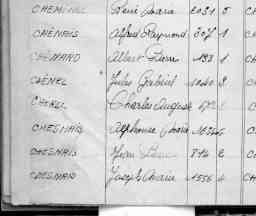 CHEMINEL René Maria 2031 5 C
CHÊNAIS Alfred Raymond 307 1 C
CHÉNARD Albert Pierre 198 1 C
CHÊNEL Jules Gabriel 1040 3 C
Charles Auguste C
CHESNAIS Alphonse Marie C
CHESNAIS Jean 874 2 C
CHESNAIS Joseph Marie 1556 4 CH